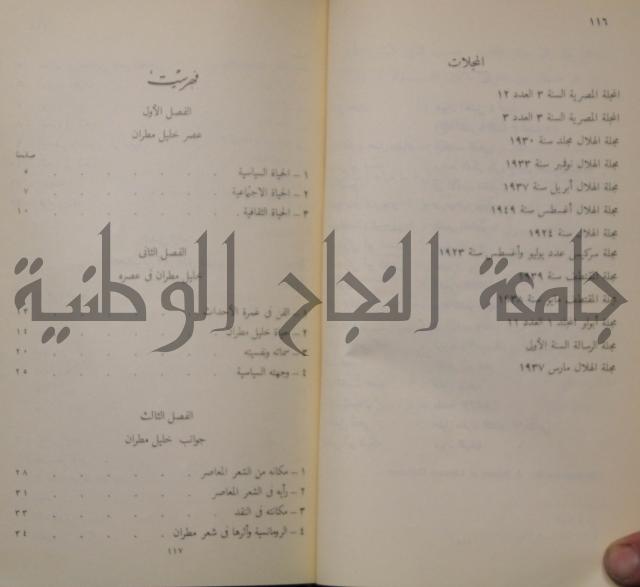 ١١٦
المجلات
المجلة المصرية السنة ٣ العدد ١٢
المجلة المصرية السنة ٣ العدد ٣
مجلة الهلال مجلد سنة ١٩٣٠
مجلة الهلال نوفمبر سنة ١٩٣٣
مجلة الهلال أبريل سنة ١٩٣٧
مجلة الهلال أغسطس سنة ١٩٤٩
مجلة الهلال سنة ١٩٢٤
مجلة سركيس عدد يوليو وأغسطس سنة ١٩٢٣
مجلة المقتطف سنة ١٩٣٩
مجلة المقتطف مايو سنة
مجلة أبولو المجلد ١ العدد ١١
مجلة الرسالة السنة الأولى
مجلة الهلال مارس ١٩٣٧
فهرست
الفصل الأول
عصر خليل مطران
صفحة
١ – الحياة السياسية . . . . . . ٥
٢ – الحياة الاجتماعية . . . . . . ٧
٣ – الحياة الثقافية . . . . . . ١٠
الفصل الثانى
خليل مطران فى عصره
١ – الفن فى غمرة الأحداث
٢ – حياة خليل مطران . . . . . . ١٤
٣ – سماته ونفسيته . . . . . . ٢٠
٤ – وجهته السياسية . . . . . . ٢٥
الفصل الثالث
جوانب خليل مطران
١ – مكانه من الشعر المعاصر . . . . . . ٢٨
٢ – رأيه فى الشعر المعاصر . . . . . . ٣١
٣ – مكانته فى النقد . . . . . . ٣٣
٤ – الرومانسية وأثرها فى شعر مطران . . . . ٣٤
١١٧
جامعة النجاح الوطنية